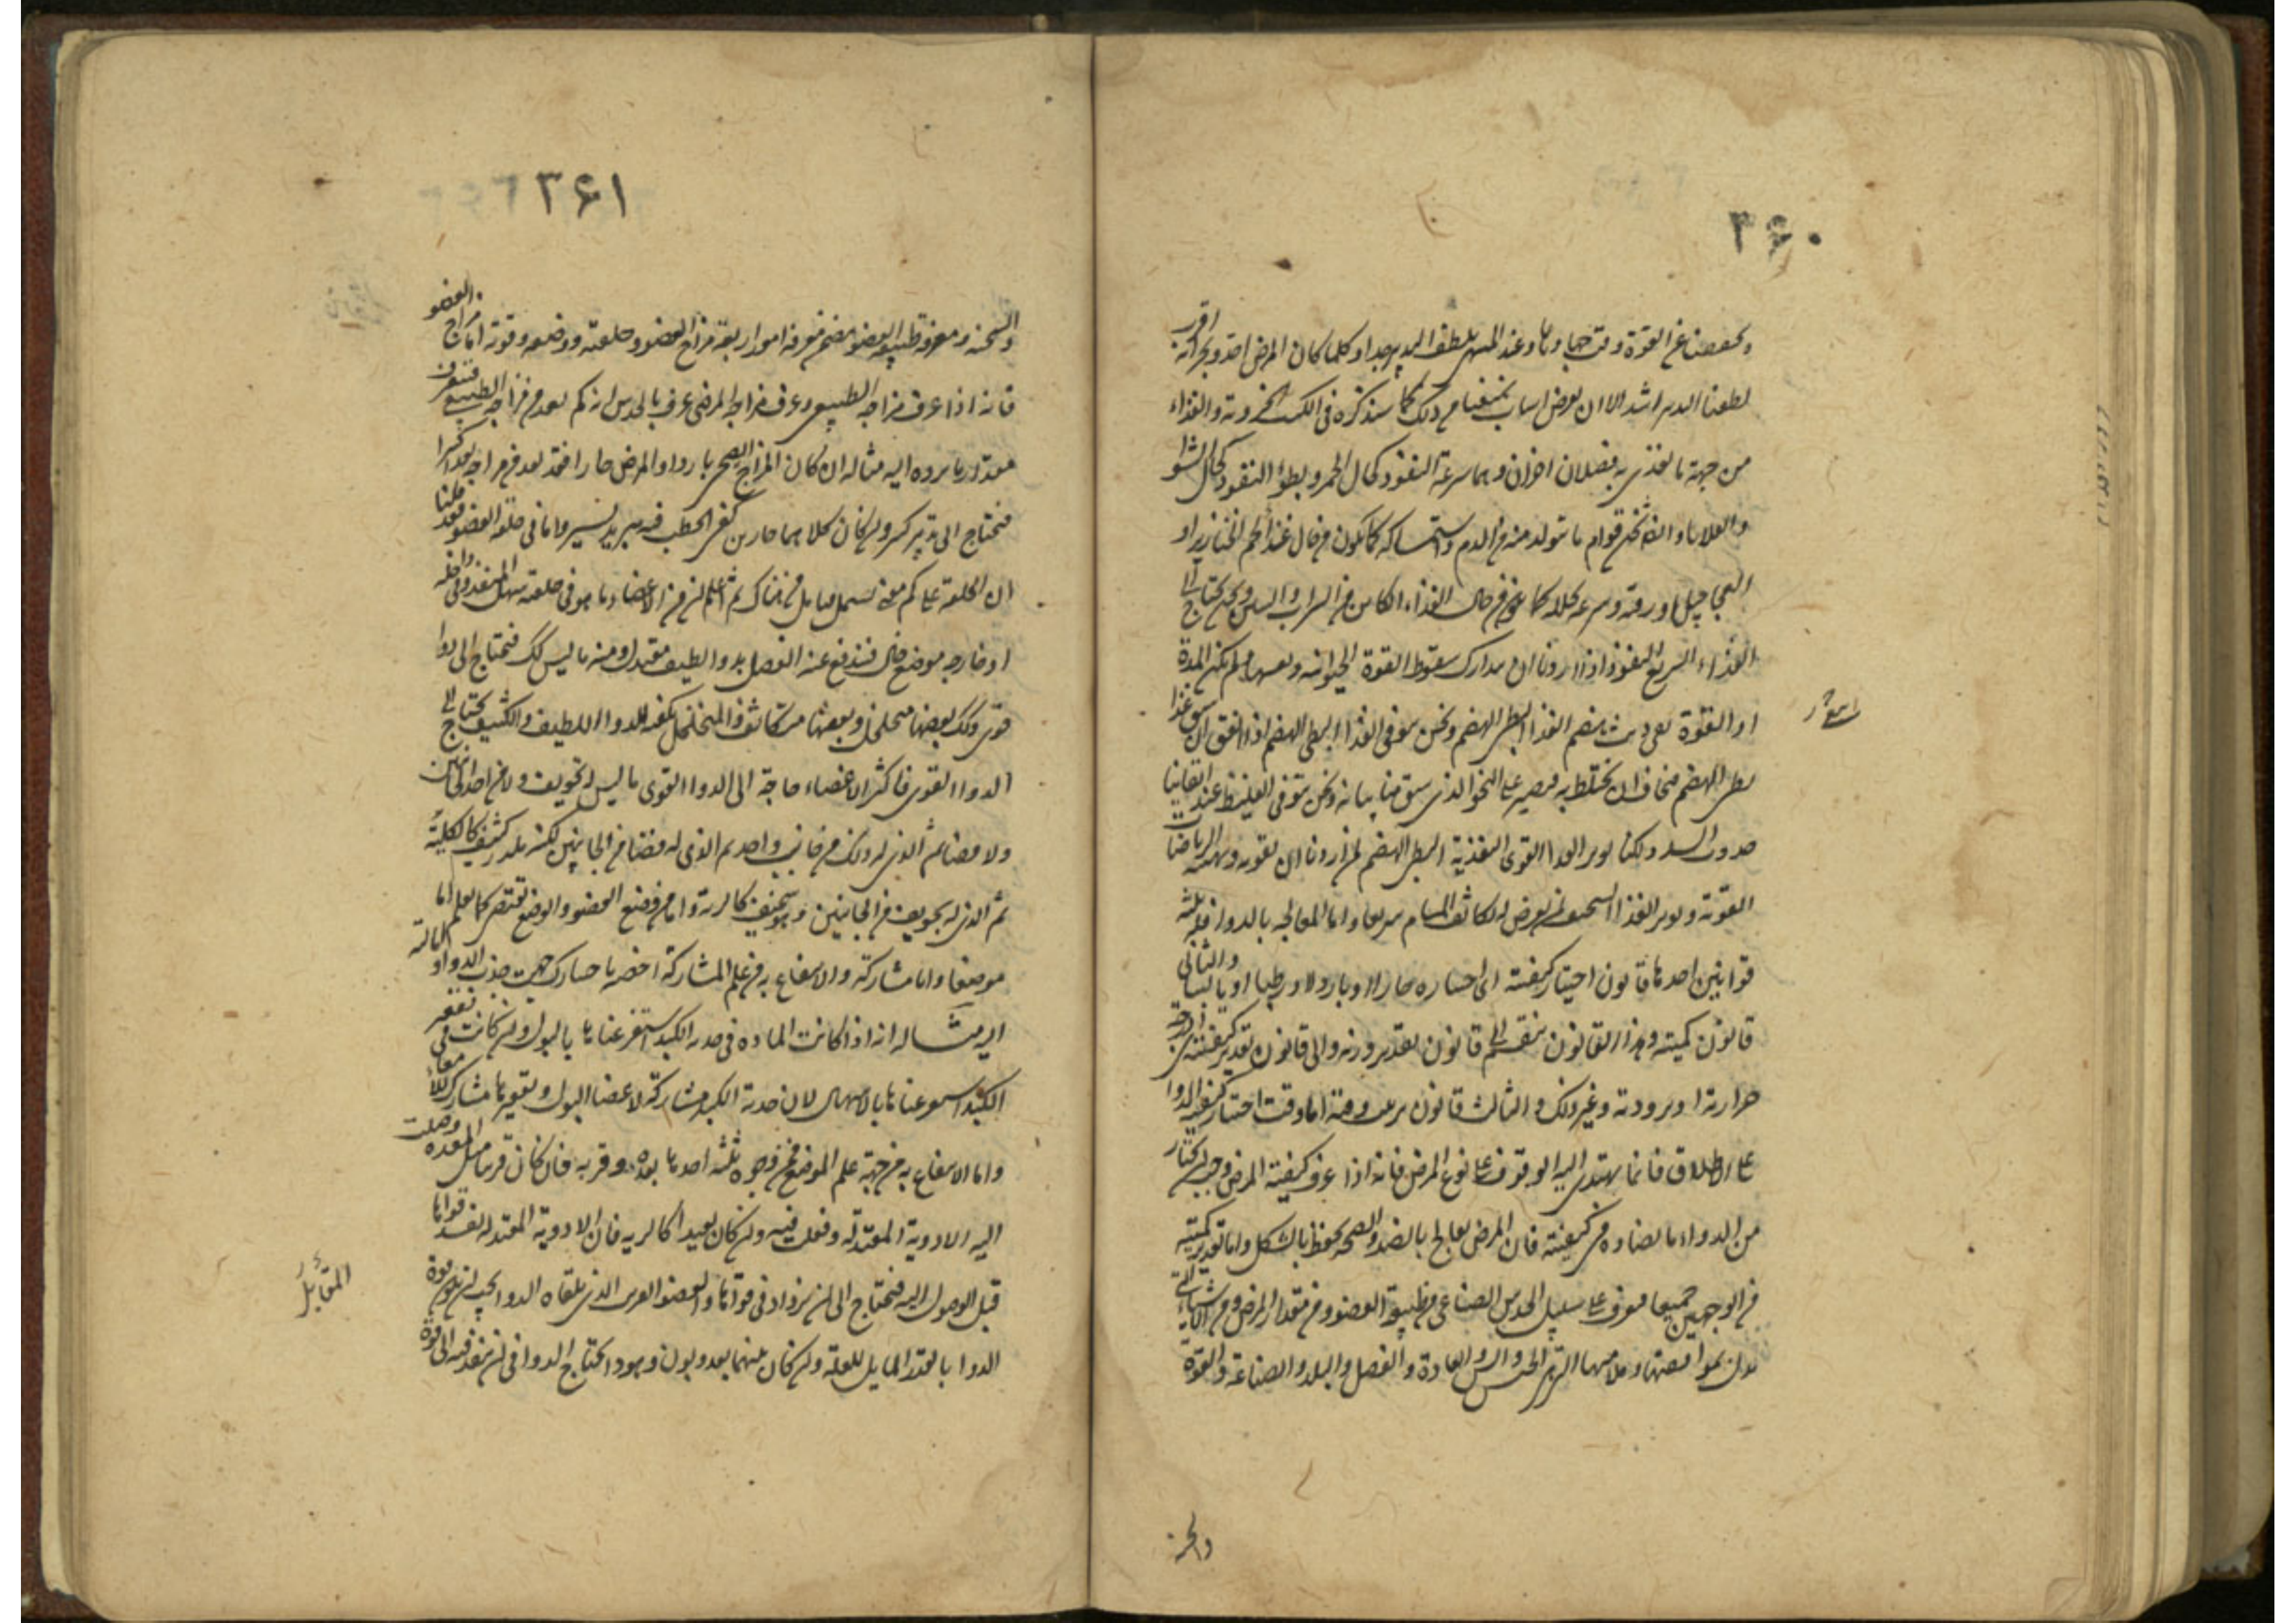 ۳۶۰
وتخفيفنا عن القوة وقت جهادها وعند المنتهى يلطف التدبير جدا وكلما كان المرض احد وبحرانه اقرب
لطفنا التدبير اشد الا ان يعرض اسباب تمنعنا من ذلك كما سنذكره فى الكتب الجزوية وللغذاء
من جهة ما يغتذى به فصلان اخران وهما سرعة النفوذ كحال الخمر وبطؤ النفوذ كحال الشوا
والقلايا وايضا ثخن قوام ما يتولد منه من الدم واستمساكه كما يكون من حال غذا لحم الخنازير او
العجاجيل او رقته وسرعة تحلله كما من حال الغذاء الكاين من الشراب والتين ونحن نحتاج الى
الغذاء السريع النفوذ اذا اردنا ان نتدارك سقوط القوة الحيوانية ولم تكن المدة
او القوة تفى ريث هضم الغذا البطى الهضم ونحن نتوقى الغذا البطى الهضم اذا اتفق ان سبق غذا
بطى الهضم فنخاف ان يختلط به فيصير على النحو الذى سبق منا بيانه ونحن نتوقى الغليظ عند ايقاننا
حدوث السدد لكنا نوثر الغذا القوى التغذية البطى الهضم لمن اردنا ان نقويه ونهيئه للرياضات
القوية ونوثر الغذا السخيف لمن يعرض له تكاثف المسام سريعا واما المعالجة بالدوا فله ثلثة
قوانين احدها قانون اختيار كيفيته اى اختياره حارا او باردا او رطبا او يابسا والثانى
قانون كميته وهذا القانون ينقسم الى قانون تقدير وزنه والى قانون تقدير كيفيته اى درجة
حرارته او برودته وغير ذلك والثالث قانون ترتيب وقته اما وقت اختيار كيفية الدوا
على الاطلاق فانما يهتدى اليه بالوقوف على نوع المرض فانه اذا عرف كيفية المرض وجب ان يختار
من الدواء ما يضاده فى كيفيته فان المرض يعالج بالضد والصحة تحفظ بالشكل واما تقدير كميته
من الوجهين جميعا فيعرف على سبيل الحدس الصناعى من طبيعة العضو ومن مقدار المرض ومن الاشياء التى
تدل بموافقتها وملايمتها التى هى الجنس والسن والعادة والفصل والبلد والصناعة والقوة
والسحنة
۳۶۱
والسحنة ومعرفة طبيعة العضو يتضمن معرفة امور اربعة مزاج العضو وخلقته ووضعه وقوته اما مزاج العضو
فانه اذا عرف مزاجه الطبيعى وعرف مزاجه المرضى عرف بالحدس انه كم بعد من مزاجه الطبيعى فيعرف
مقدار ما يرده اليه مثاله ان كان المزاج الصحى باردا والمرض حارا فقد بعد من مزاجه بعدا كثيرا
فيحتاج الى تبريد كثير وان كان كلاهما حارين كفى الخطب فيه تبريد يسير واما فى خلقة العضو فقد قلنا
ان الخلقة على كم معنى تشتمل فتامل من هناك ثم اعلم ان من الاعضاء ما هو فى خلقته سهل المنفذ وفى داخله
او خارجه موضع خال فتندفع عنه الفضل بدوا لطيف معتدل ومنه ما ليس كذلك فيحتاج الى دوا
قوى وكذلك بعضها متخلخل وبعضها متكاثف والمتخلخل يكفيه الدوا اللطيف والكثيف يحتاج الى
الدوا القوى فاكثر الاعضاء حاجة الى الدوا القوى ما ليس له تجويف ولا من احد الجانبين
ولا فضا ثم الذى له ذلك من جانب واحد ثم الذى له فضا من الجانبين لكنه ملزز كثيف كالكلية
ثم الذى له تجويف من الجانبين وهو سخيف كالرية واما من وضع العضو والوضع يقتضى كما تعلم اما
موضعا واما مشاركة والانتفاع به من علم المشاركة اخصه باختيارك جهة جذب الدوا وامالته
اليه مثاله انه اذا كانت المادة فى حدبة الكبد استفرغناها بالبول وان كانت فى تقعير
الكبد استفرغناها بالاسهال لان حدبة الكبد مشاركة لاعضا البول وتقعيرها مشارك للامعا
واما الانتفاع به من جهة علم الموضع فمن وجوه ثلثة احدها بعده وقربه فان كان قريبا مثل المعدة وصلت
اليه الادوية المعتدلة وفعلت فيه وان كان بعيدا كالرية فان الادوية المعتدلة تفسد قواها
قبل الوصول اليه فيحتاج الى ان يزداد فى قواها والعضو القريب الذى يلقاه الدوا يجب ان يكون قوة
الدوا بالقدر المقابل للعلة وان كان بينهما بعد وبون وهو دوا يحتاج الدوا فى ان ينفذ فيه الى قوة
المقابل